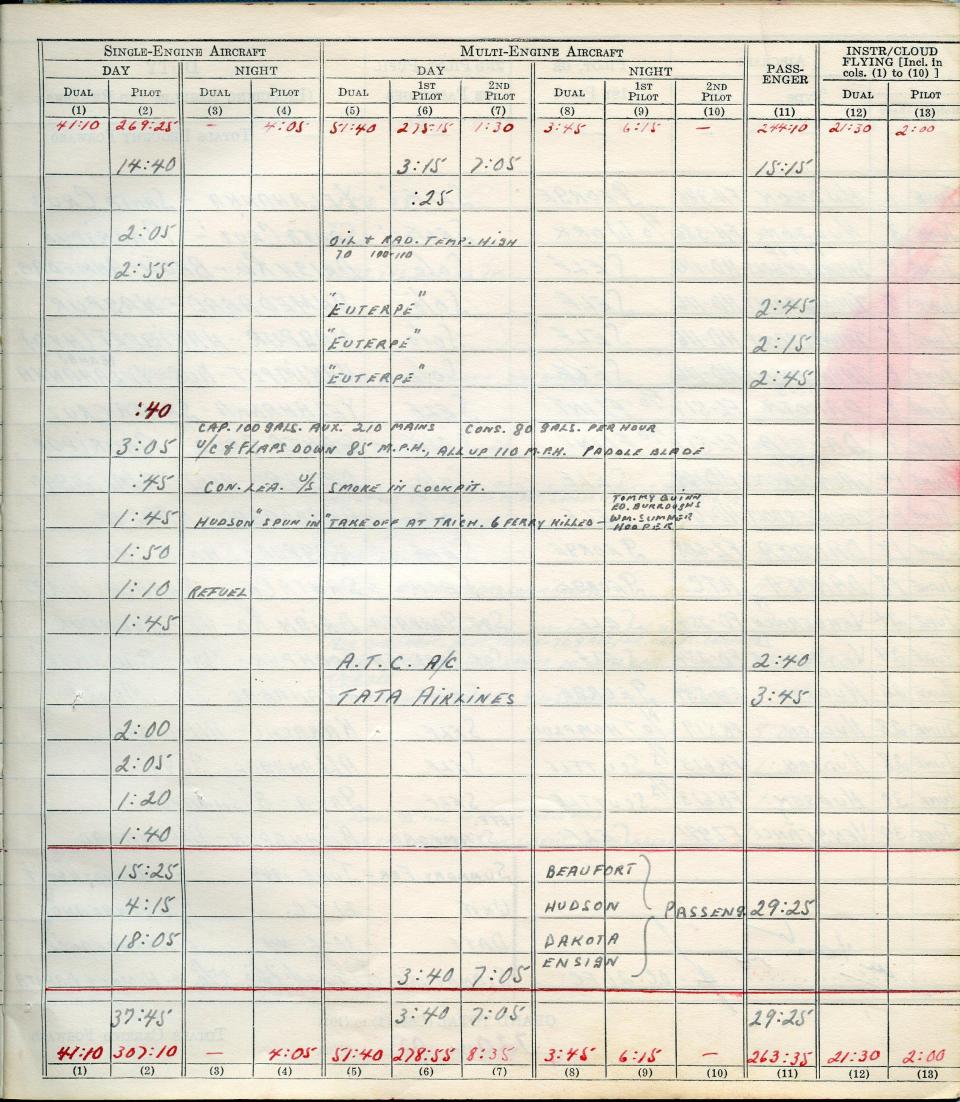 SINGLE-ENGINE AIRCRAFT MULTI-ENGINE AIRCRAFT PASS-ENGER INSTR/CLOUD FLYING [Incl. in cols. (1) to (10) ]
DAY NIGHT DAY NIGHT
DUAL PILOT DUAL PILOT DUAL 1ST PILOT 2ND PILOT DUAL 1ST PILOT 2ND PILOT DUAL PILOT
(1) (2) (3) (4) (5) (6) (7) (8) (9) (10) (11) (12) (13)
41:10 269:25 — 4:05 51:40 275:15 1:30 3:45 6:15 — 244:10 21:30 2:00
14:40 3:15 7:05 15:15
:25
2:05 OIL & RAD. TEMP. HIGH
70 100-110
2:55
"EUTERPE" 2:45
"EUTERPE" 2:15
"EUTERPE" 2:45
:40
CAP. 100 GALS. AUX. 210 MAINS CONS. 80 GALS. PER HOUR
3:05 U/C & FLAPS DOWN 85 M.P.H., ALL UP 110 M.P.H. PADDLE BLADE
:45 CON. LEA. U/S SMOKE IN COCKPIT.
1:45 HUDSON "SPUN IN" TAKE OFF AT TRICH. 6 FERRY KILLED — TOMMY QUINN
ED. BURROUGHS
WM. SUMNER
HOOPER
1:50
1:10 REFUEL
1:45
A.T.C. A/C 2:40
TATA AIRLINES 3:45
2:00
2:05
1:20
1:40
15:25 BEAUFORT
4:15 HUDSON PASSENG. 29:25
18:05 DAKOTA
ENSIGN
3:40 7:05
37:45 3:40 7:05 29:25
41:10 307:10 — 4:05 51:40 278:55 8:35 3:45 6:15 — 263:35 21:30 2:00
(1) (2) (3) (4) (5) (6) (7) (8) (9) (10) (11) (12) (13)